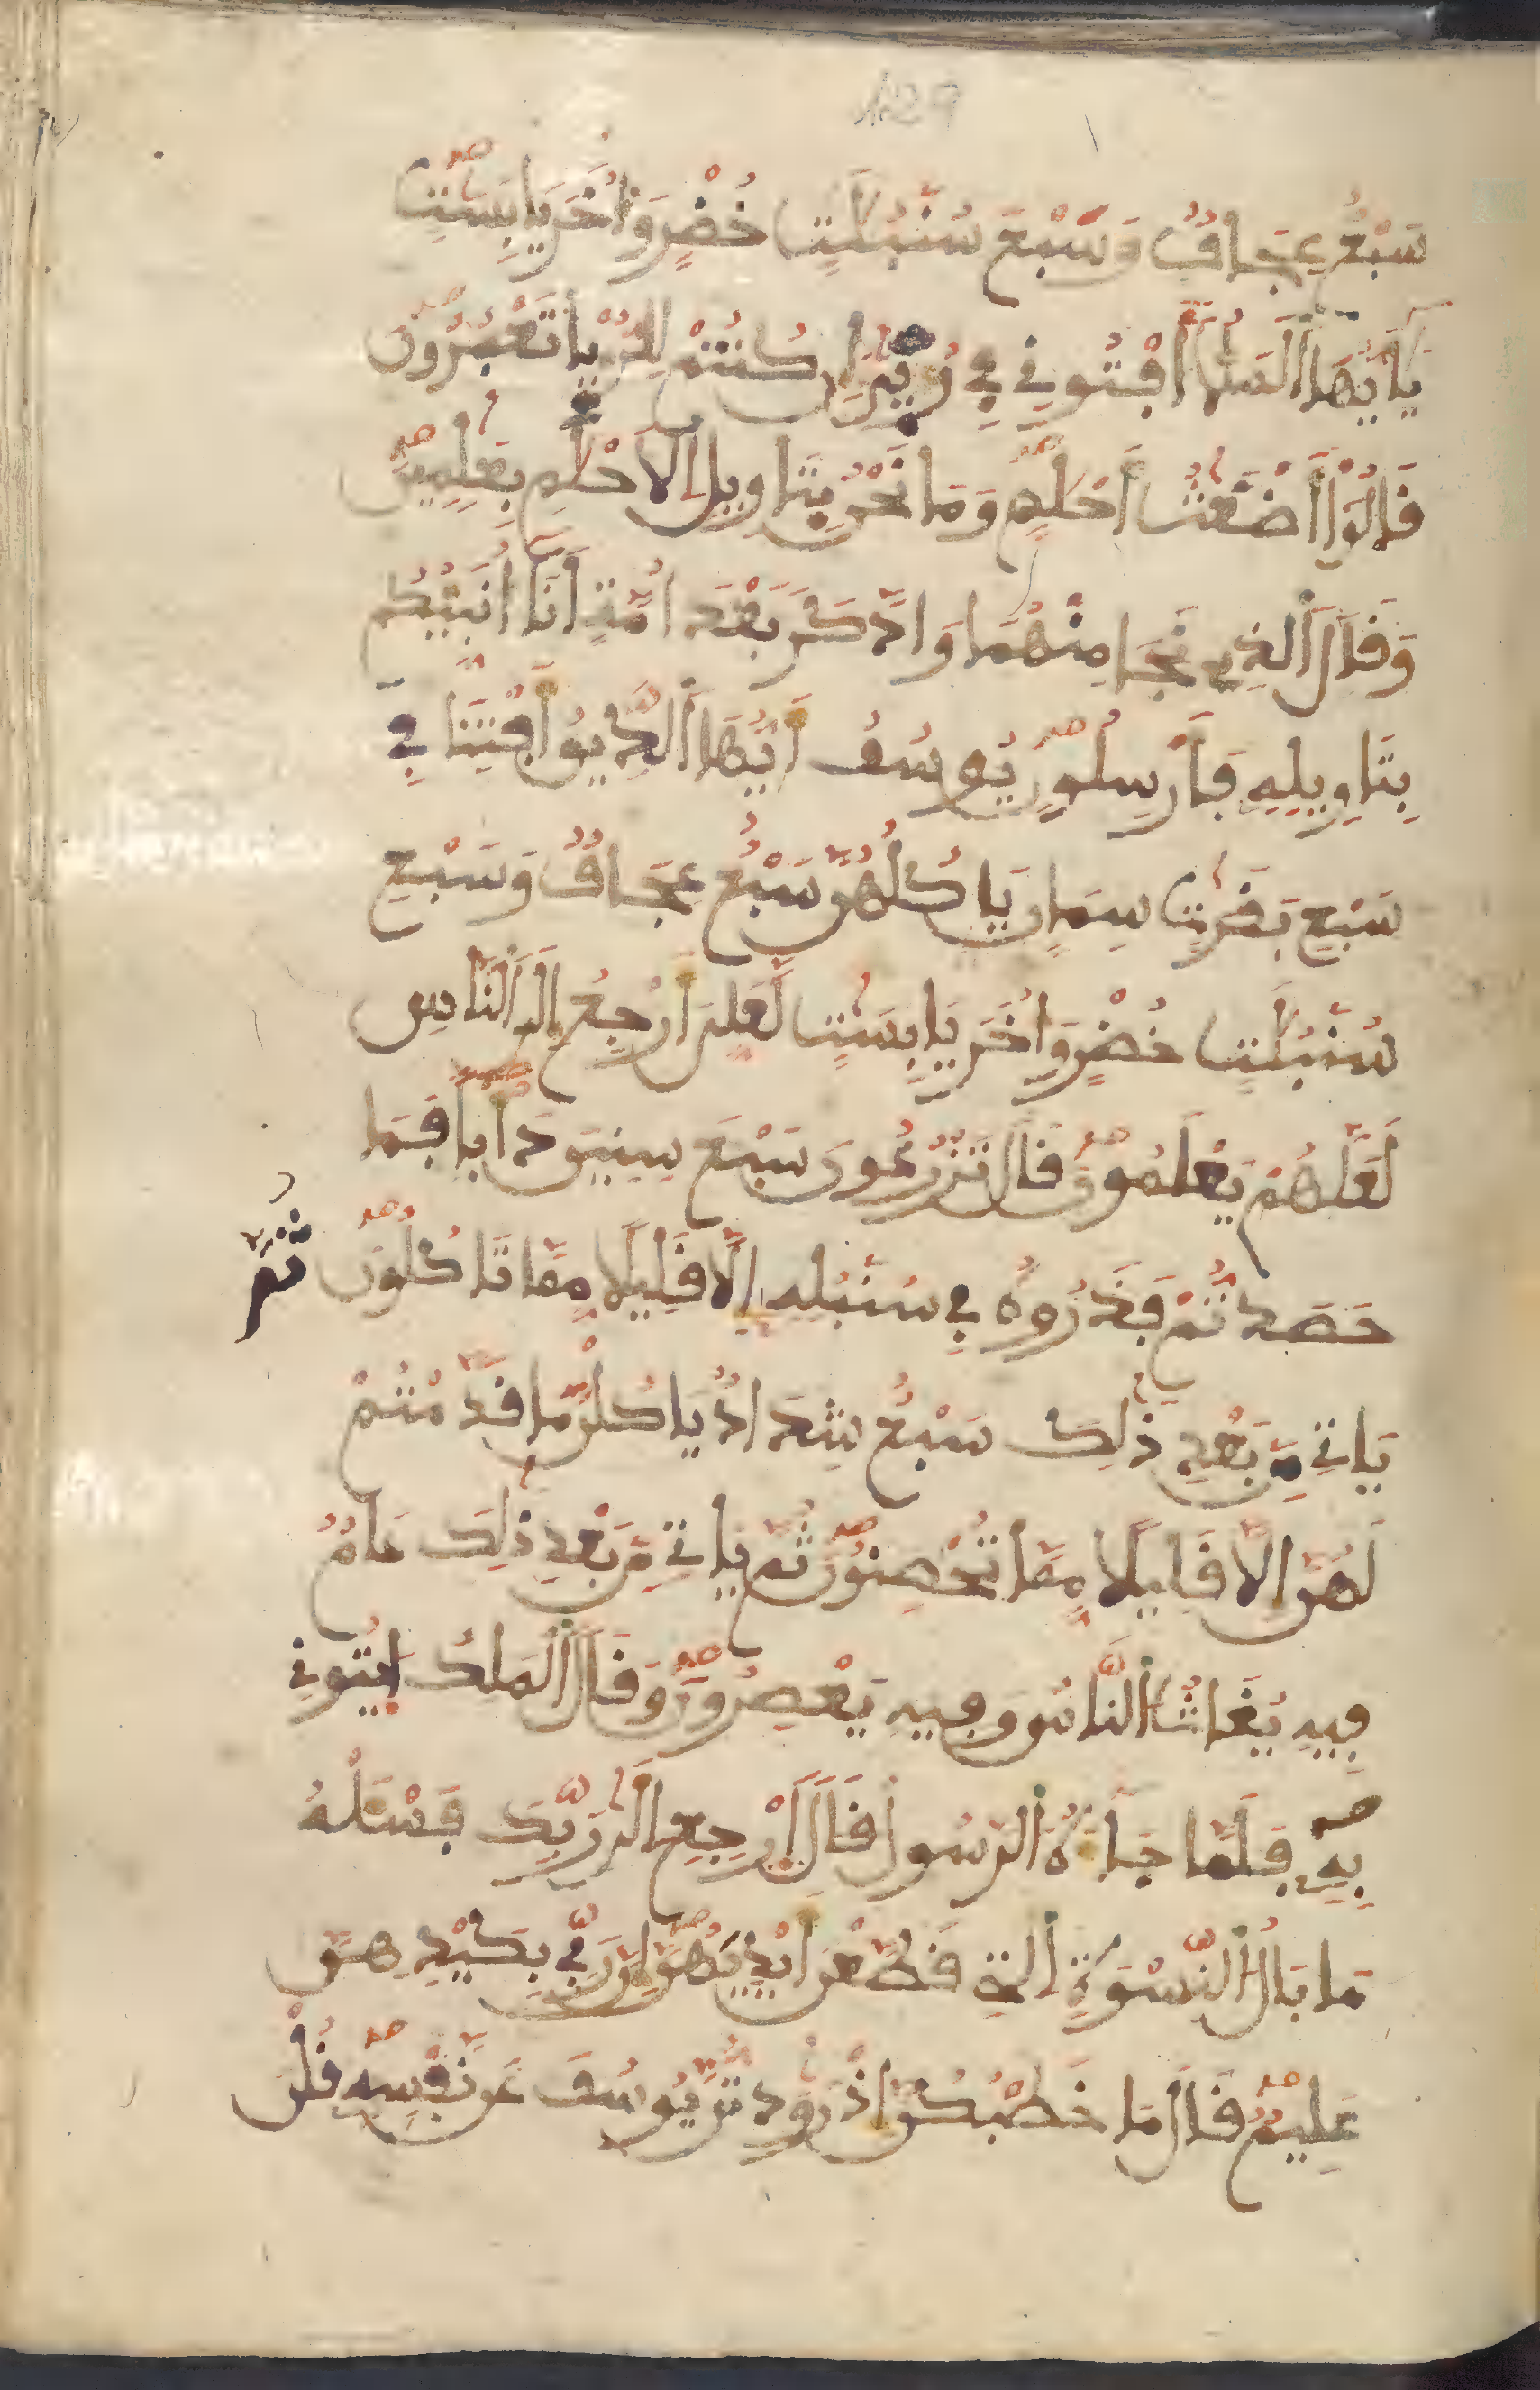 129
سَبْعٌ عِجَافٌ وَسَبْعَ سُنۢبُلَٰتٍ خُضْرٍ وَأُخَرَ يَابِسَٰتٍ
يَٰأَيُّهَا ٱلْمَلَأُ اَفْتُونِے فِے رُءْيَٰيَ إِن كُنتُمْ لِلرُّءْيَا تَعْبُرُونَ
قَالُوٓاْ أَضْغَٰثُ أَحْلَٰمٍ وَمَا نَحْنُ بِتَاوِيلِ اِلَاحْلَٰمِ بِعَٰلِمِينَ
وَقَالَ ٱلذِے نَجَا مِنْهُمَا وَادَّكَرَ بَعْدَ أُمَّةٍ اَنَآ أُنَبِّئُكُم
بِتَاوِيلِهِۦ فَأَرْسِلُونِ يُوسُفُ أَيُّهَا ٱلصِّدِّيقُ أَفْتِنَا فِے
سَبْعِ بَقَرَٰتٍ سِمَانٍ يَاكُلُهُنَّ سَبْعٌ عِجَافٌ وَسَبْعِ
سُنۢبُلَٰتٍ خُضْرٍ وَأُخَرَ يَابِسَٰتٍ لَّعَلِّيَ أَرْجِعُ إِلَى ٱلنَّاسِ
لَعَلَّهُمْ يَعْلَمُونَ قَالَ تَزْرَعُونَ سَبْعَ سِنِينَ دَأْبا فَمَا
حَصَدتُّمْ فَذَرُوهُ فِے سُنۢبُلِهِۦ إِلَّا قَلِيلًا مِّمَّا تَاكُلُونَ ثُمَّ
يَاتِے مِنۢ بَعْدِ ذَٰلِكَ سَبْعٌ شِدَادٌ يَاكُلْنَ مَا قَدَّمْتُمْ
لَهُنَّ إِلَّا قَلِيلًا مِّمَّا تُحْصِنُونَ ثُمَّ يَاتِے مِنۢ بَعْدِ ذَٰلِكَ عَامٌ
فِيهِ يُغَاثُ ٱلنَّاسُ وَفِيهِ يَعْصِرُونَ وَقَالَ ٱلْمَلِكُ اُيتُونِے
بِهِۦ فَلَمَّا جَآءَهُ ٱلرَّسُولُ قَالَ اَرْجِعِ اِلَىٰ رَبِّكَ فَسْـَٔلْهُ
مَا بَالُ ٱلنِّسْوَةِ ٱلتِے قَطَّعْنَ أَيْدِيَهُنَّ إِنَّ رَبِّے بِكَيْدِهِنَّ
عَلِيمٌ قَالَ مَا خَطْبُكُنَّ إِذْ رَٰوَدتُّنَّ يُوسُفَ عَن نَّفْسِهِۦ قُلْنَ